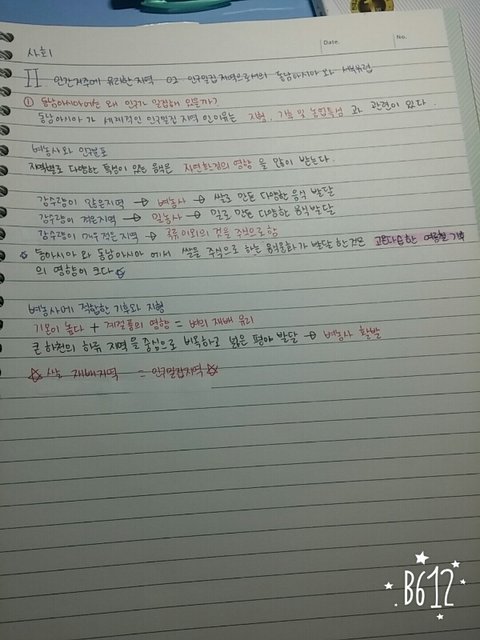 Date.
No.
사회
II 인간거주에 유리한 지역 02 인구밀집지역으로서의 동남아시아와 서북유럽
① 동남아시아에는 왜 인구가 밀집해 있을까?
동남아시아가 세계적인 인구밀집 지역 인이유는 지형, 기후 및 농업특성 과 관련이 있다.
벼농사와 인구분포
지역별로 다양한 특성이 있는 음식은 자연환경의 영향을 많이 받는다.
강수량이 많은지역 → 벼농사 → 쌀로 만든 다양한 음식 발달
강수량이 적은지역 → 밀농사 → 밀로 만든 다양한 음식발달
강수량이 매우적은 지역 → 곡류 이외의 것을 주식으로 함
☆ 동아시아 와 동남아시아 에서 쌀을 주식으로 하는 음식문화가 발달 한것은 고온다습한 여름철 기후
의 영향이 크다☆
벼농사에 적합한 기후와 지형
기온이 높다 + 계절풍의 영향 = 벼의 재배 유리
큰 하천의 하류 지역을 중심으로 비옥하고 넓은 평야 발달 → 벼농사 활발
☆ 쌀 재배지역 = 인구밀집지역 ☆
B612